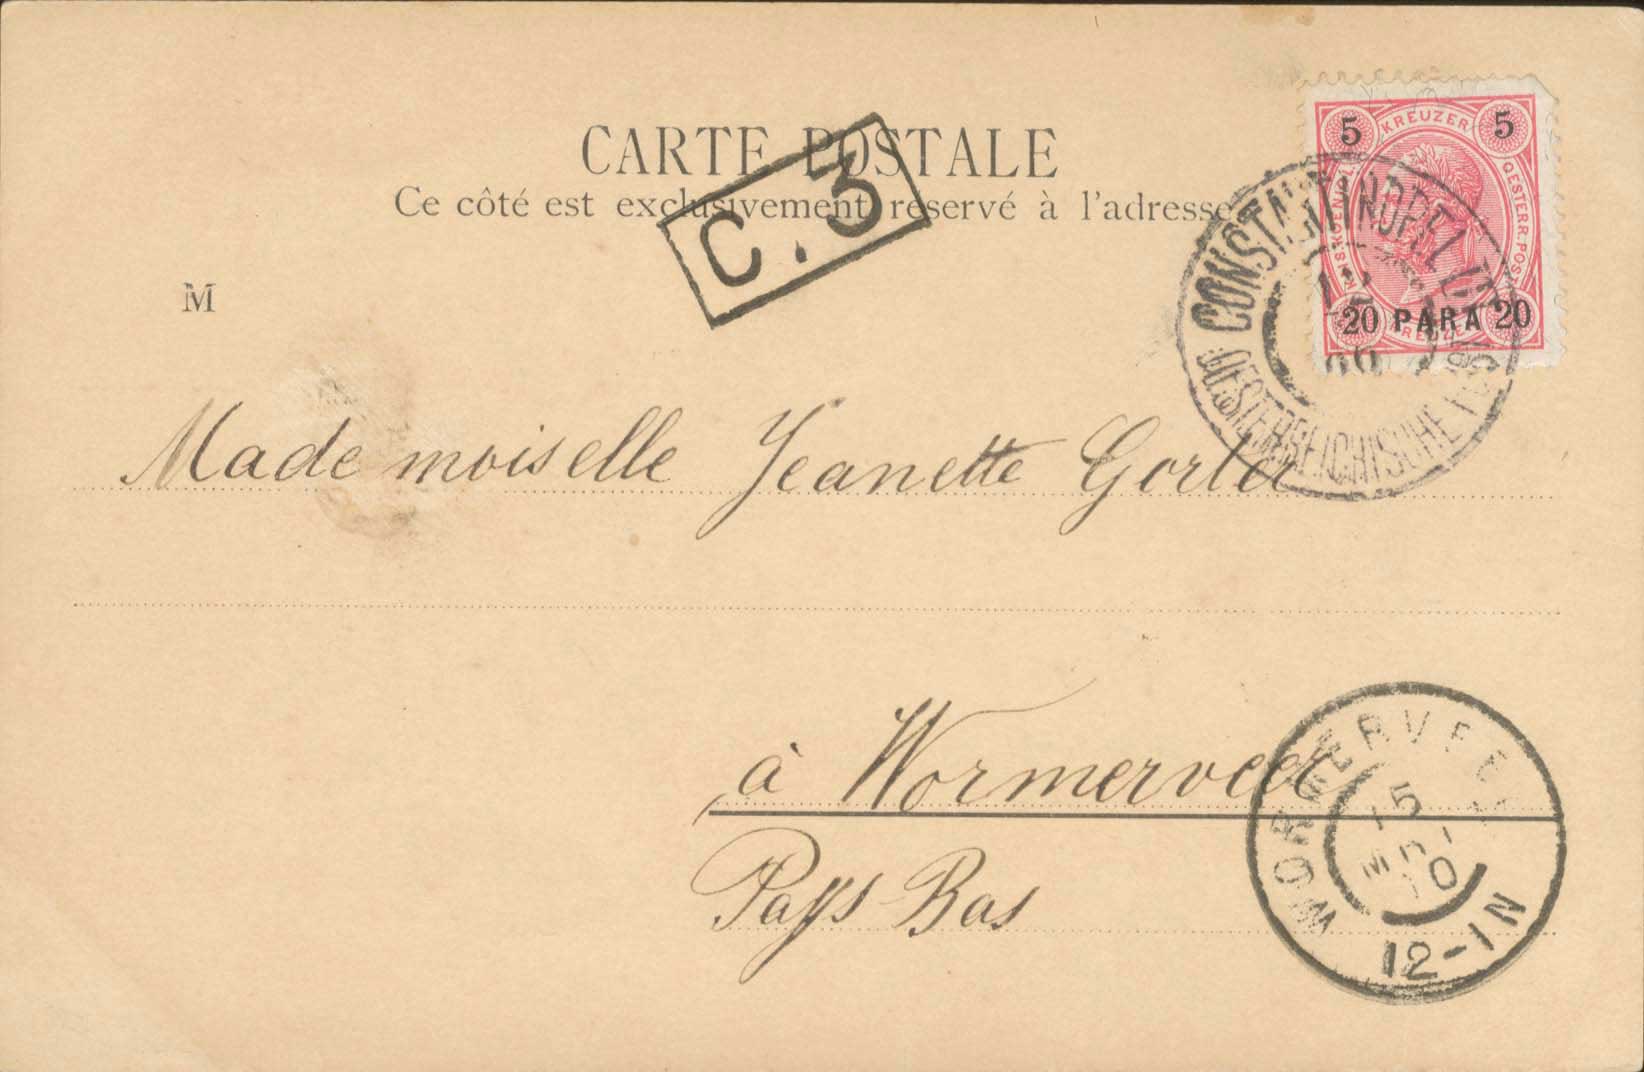 CARTE POSTALE
Ce côté est exclusivement réservé à l'adresse
C. 3
M
5 KREUZER 5
OESTERR. POST
20 PARA 20
KREUZER
CONSTANTINOPEL
OESTERREICHISCHE POST
Mademoiselle Jeanette Gorter
à Wormerveer
Pays-Bas
WORMERVEER
15
12-1N